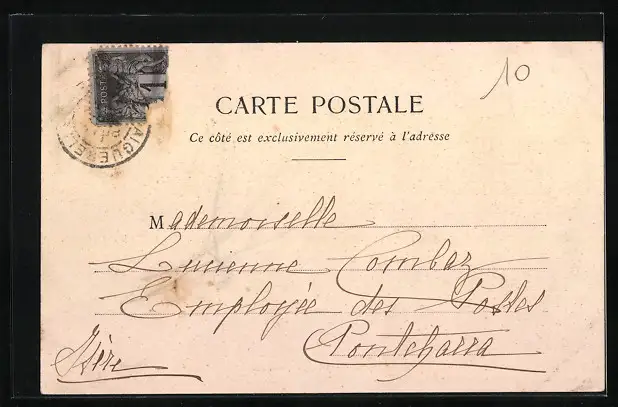 10
POSTES
1
AIGUEBELLE
CARTE POSTALE
Ce côté est exclusivement réservé à l'adresse
Mademoiselle
Lucienne Combaz
Employée des Postes
Pontcharra
Isère